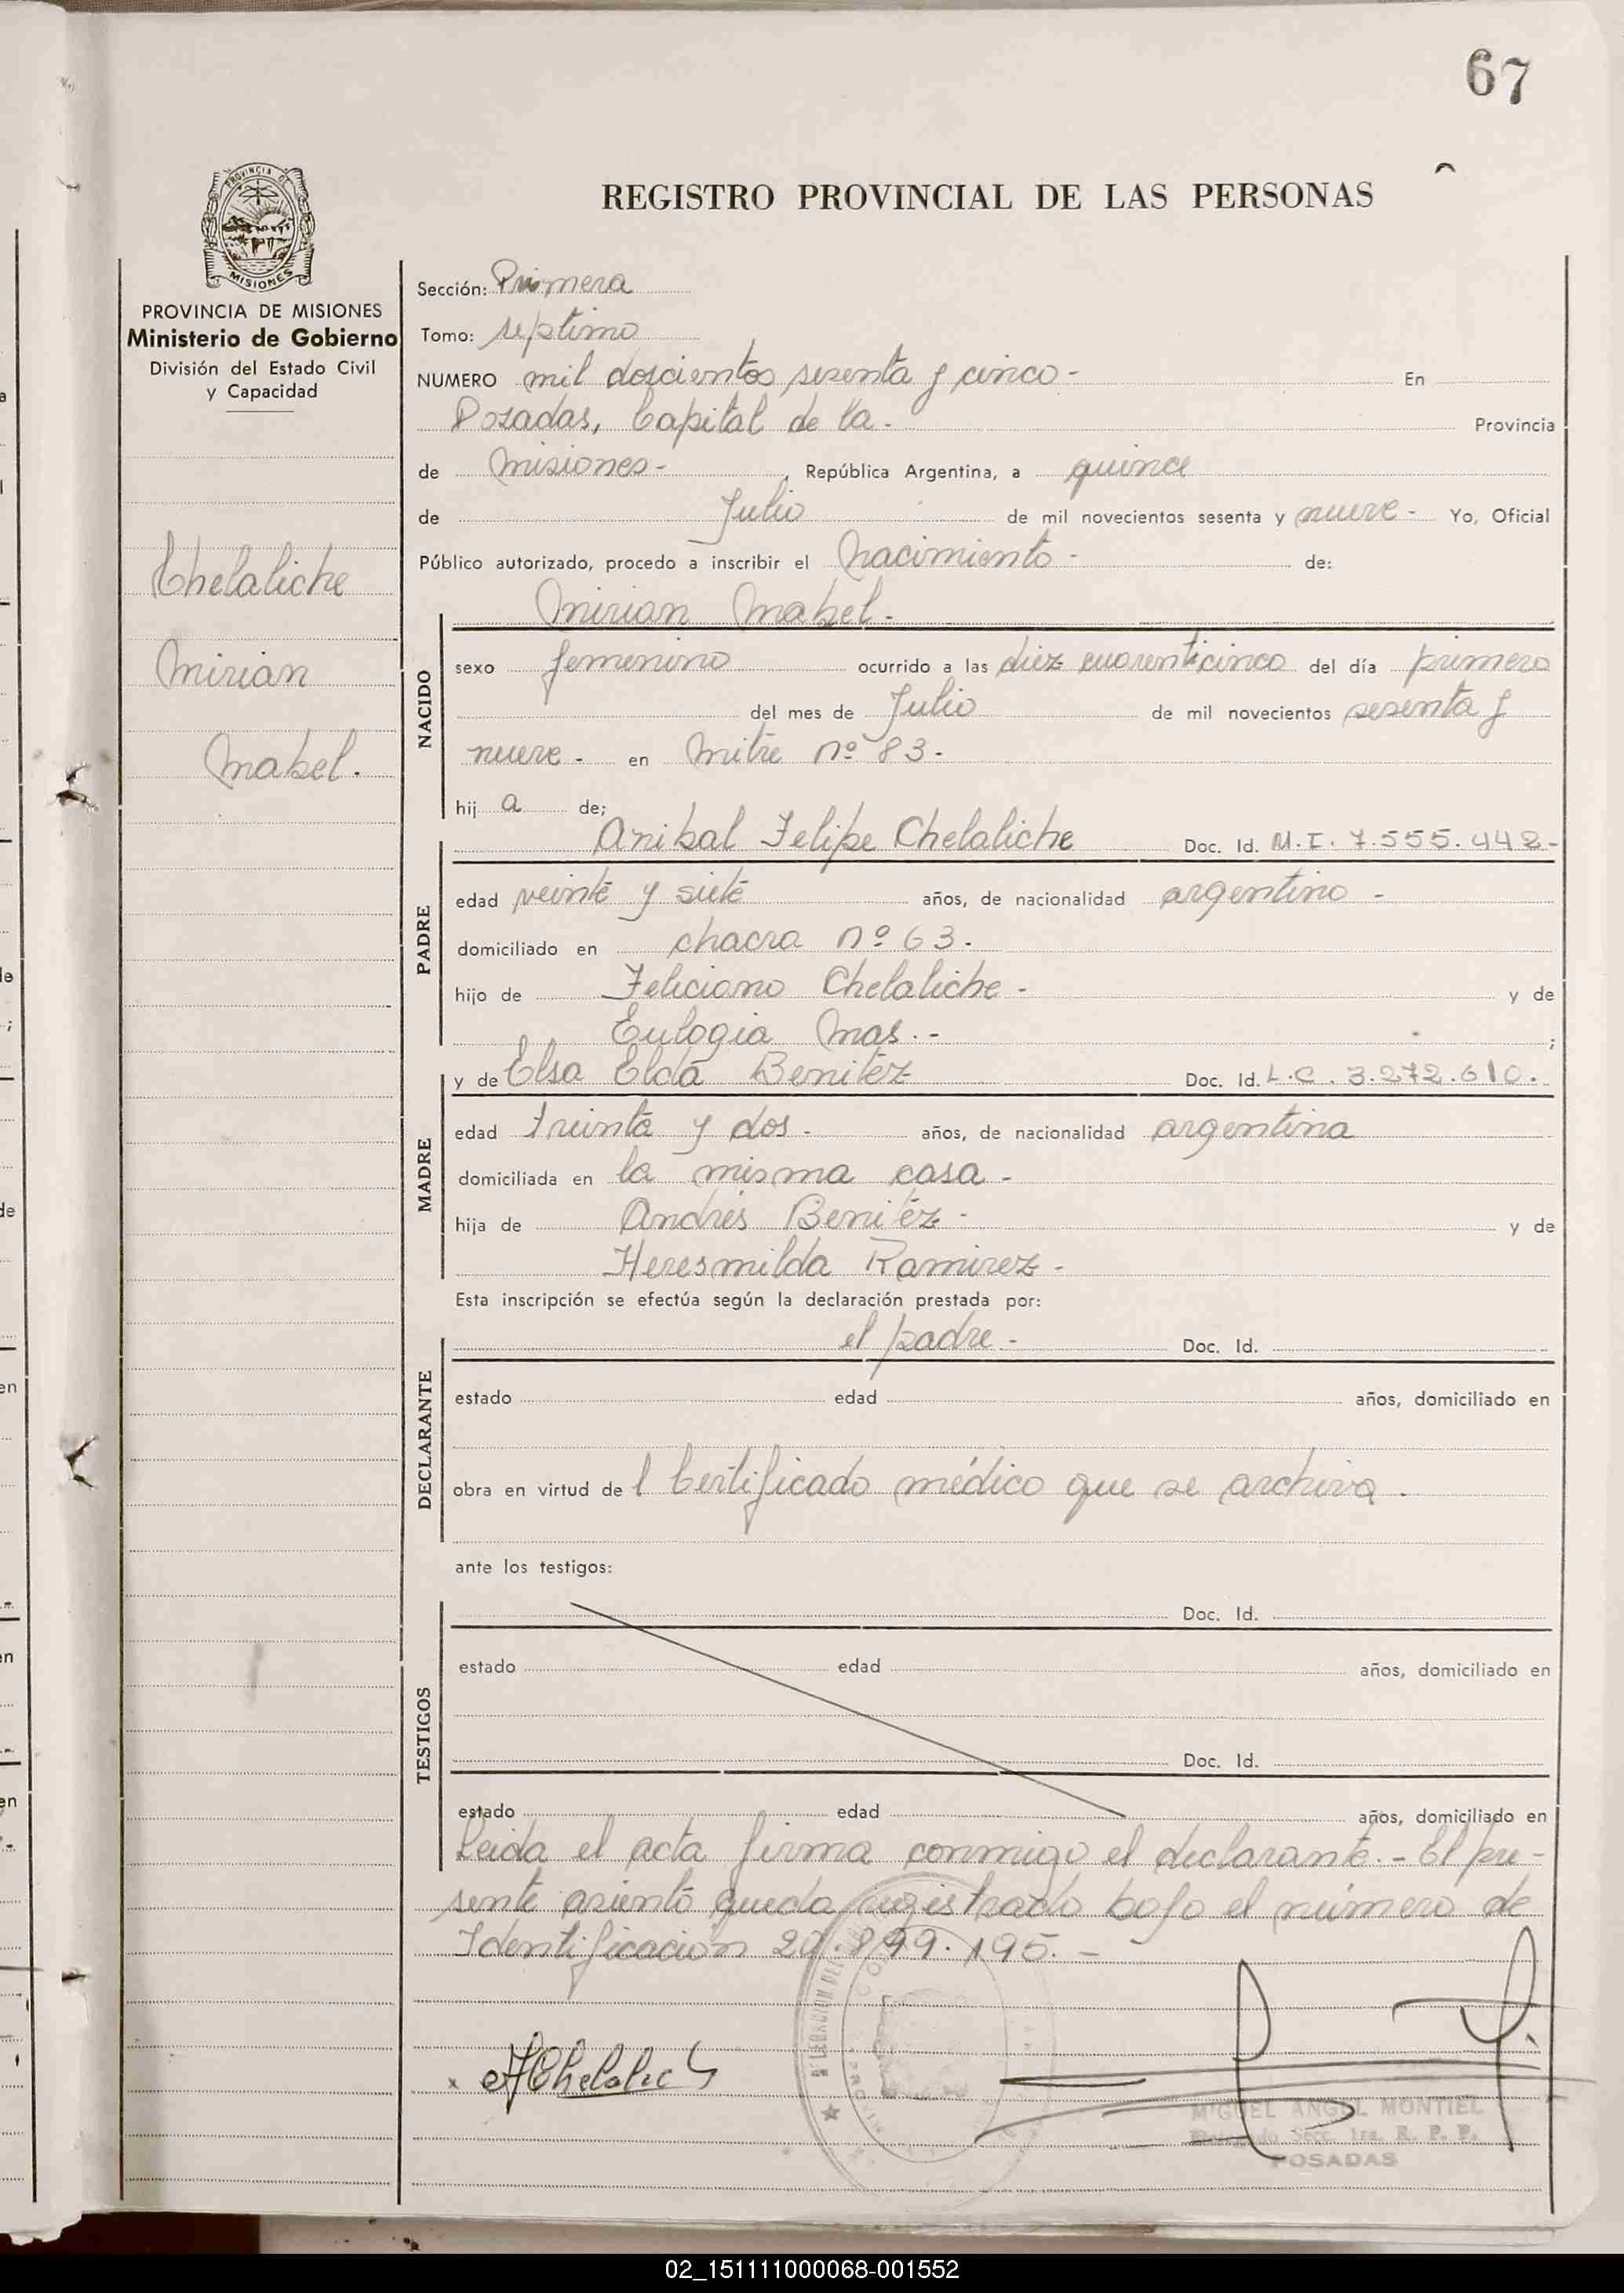 67
REGISTRO PROVINCIAL DE LAS PERSONAS
PROVINCIA DE
MISIONES
PROVINCIA DE MISIONES
Ministerio de Gobierno
División del Estado Civil
y Capacidad
Chelaliche
Mirian
Mabel.
Sección: Primera
Tomo: septimo
NUMERO mil doscientos sesenta y cinco - En
Posadas, Capital de la - Provincia
de Misiones - , República Argentina, a quince
de Julio de mil novecientos sesenta y nueve - Yo, Oficial
Público autorizado, procedo a inscribir el Nacimiento - de:
Mirian Mabel -
NACIDO
sexo femenino ocurrido a las diez cuarenticinco del día primero
del mes de Julio de mil novecientos sesenta y
nueve - en Mitre nº 83 -
hij a de;
Anibal Felipe Chelaliche Doc. Id. M.I. 7.555.442-
PADRE
edad veinte y siete años, de nacionalidad argentino -
domiciliado en chacra nº 63.
hijo de Feliciano Chelaliche - y de
Eulogia Mas. - ;
y de Elsa Elda Benitez Doc. Id. L.C. 3.272.610.
MADRE
edad treinta y dos - años, de nacionalidad argentina
domiciliada en la misma casa -
hija de Andrés Benitez - y de
Heresmilda Ramirez -
Esta inscripción se efectúa según la declaración prestada por:
el padre - Doc. Id.
DECLARANTE
estado edad años, domiciliado en
obra en virtud de l Certificado médico que se archiva.
ante los testigos:
Doc. Id.
TESTIGOS
estado edad años, domiciliado en
Doc. Id.
estado edad años, domiciliado en
Leida el acta firma conmigo el declarante. - El pre-
sente asiento queda registrado bajo el número de
Identificacion 20.899.195. -
x AChelalich
MIGUEL ANGEL MONTIEL
Secc. 1ra. R. P. P.
POSADAS
02_151111000068-001552